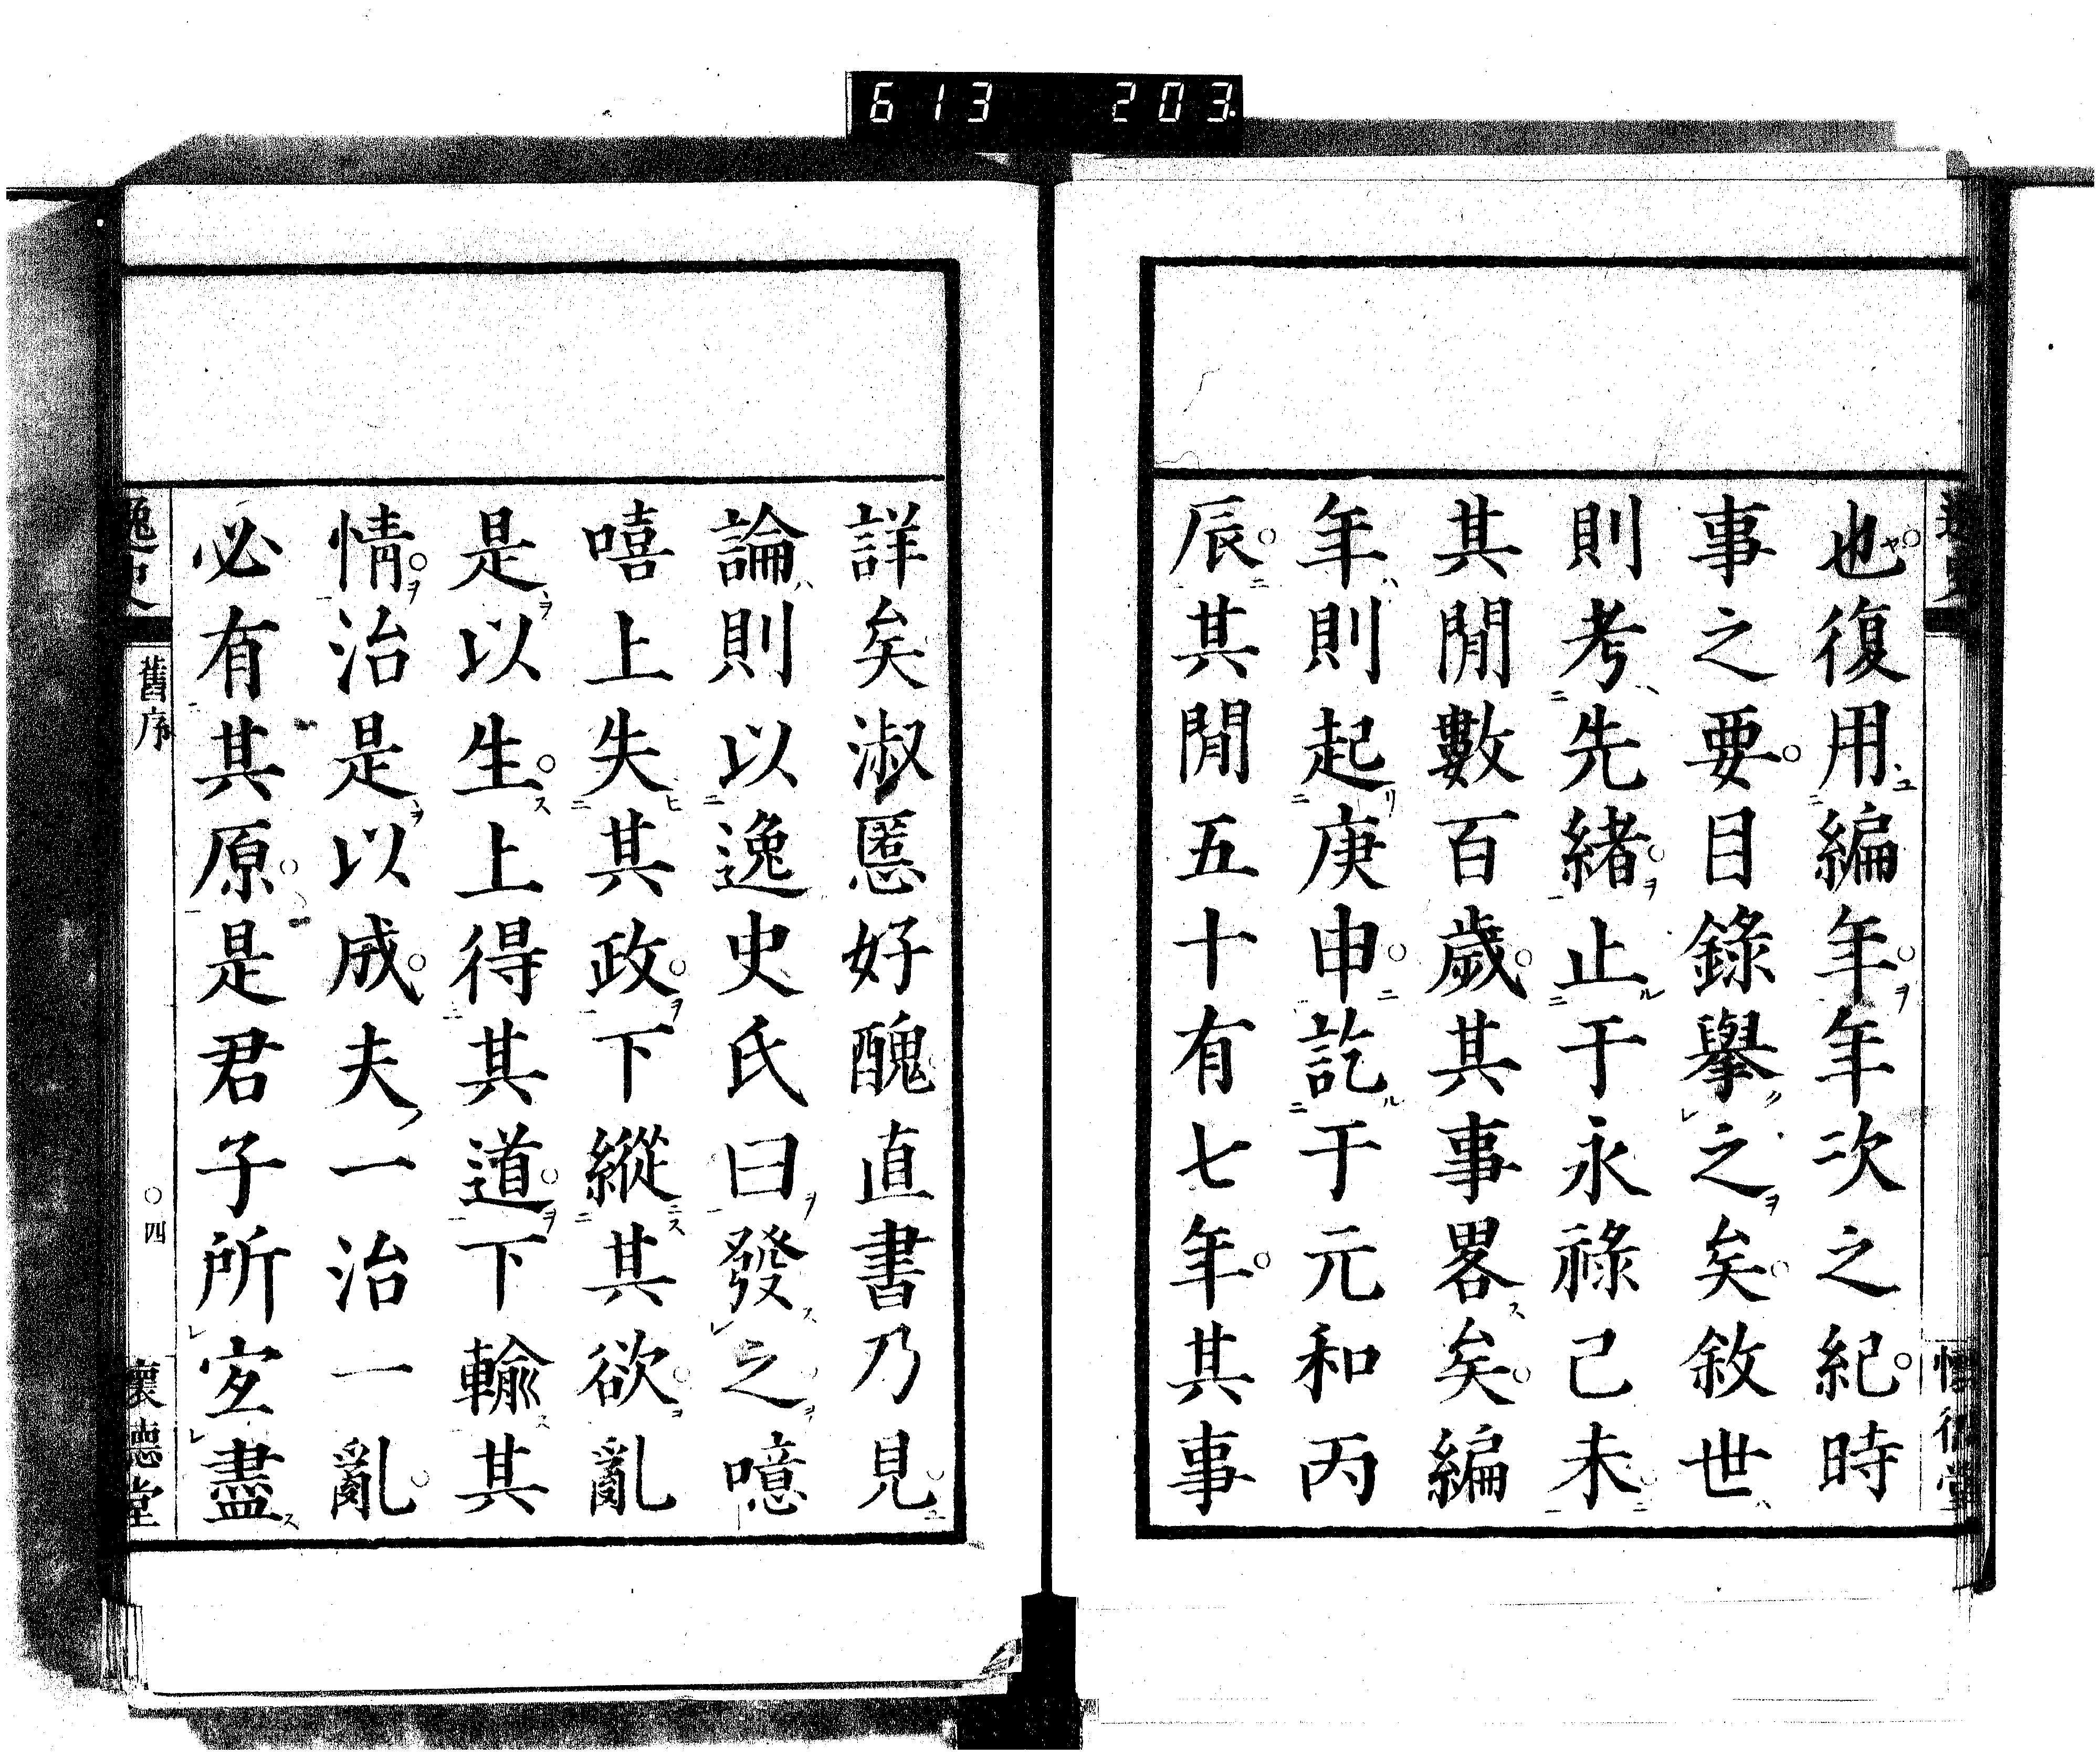 613 203
也復用編年年次之紀時
事之要目錄擧之矣敘世
則考先緒止于永祿己未
其閒數百歲其事畧矣編
年則起庚申訖于元和丙
辰其閒五十有七年其事
詳矣淑慝好醜直書乃見
論則以逸史氏曰發之噫
嘻上失其政下縱其欲亂
是以生上得其道下輸其
情治是以成夫一治一亂
必有其原是君子所宜盡
逸史
舊序
四
懷德堂